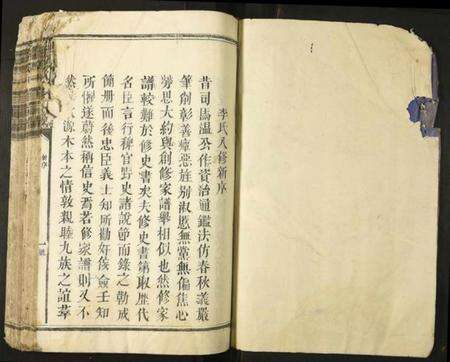 李氏八修新序
昔司馬溫公作資治通鑑法仿春秋義嚴
筆削彰善癉惡旌别淑慝無黨無偏焦心
勞思大約與創修家譜畢相似也然修家
譜較難於修史書矣夫修史書第取歷代
名臣言行稗官野史諸說節而錄之勒成
簡册而後忠臣義士知所勸奸佞僉壬知
所懲遂蔚然稱信史焉若修家譜則又不
然 源木本之情敦親睦九族之誼萃